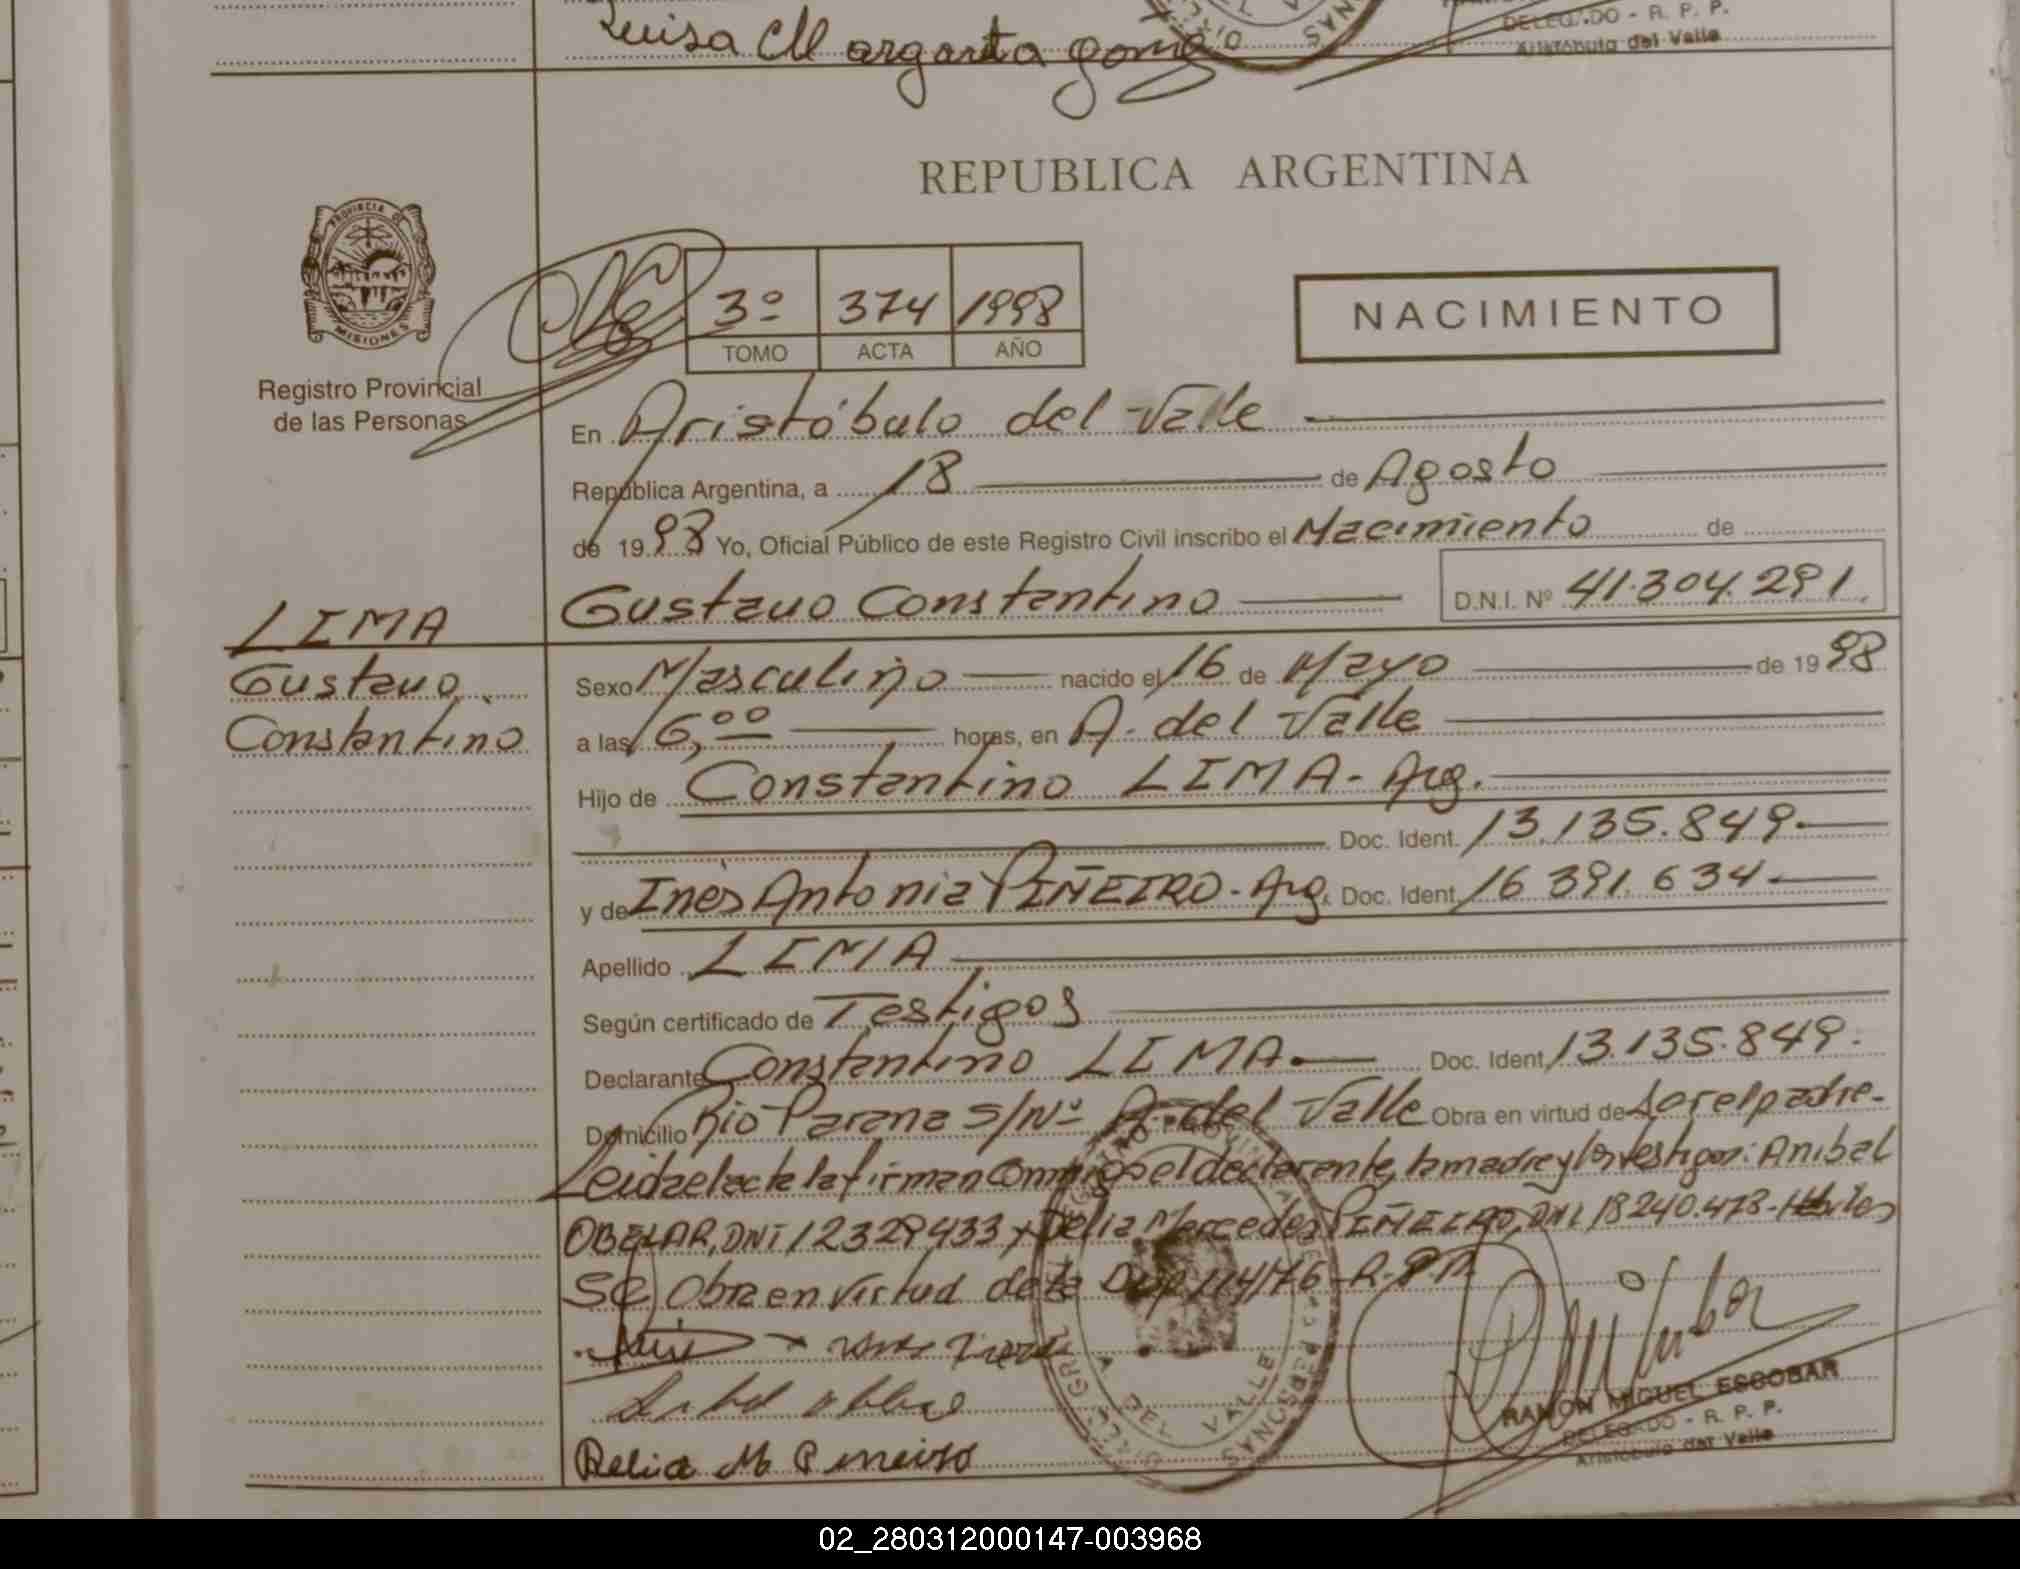 Luisa Margarita
DELEGADO - R. P. P.
Aristóbulo del Valle
REPUBLICA ARGENTINA
PROVINCIA DE
MISIONES
Registro Provincial
de las Personas
3º 374 1998
TOMO ACTA AÑO
NACIMIENTO
En Aristóbulo del Valle
República Argentina, a 18 de Agosto
de 1998 Yo, Oficial Público de este Registro Civil inscribo el Nacimiento de
Gustavo Constantino D.N.I. Nº 41.304.291.
LIMA
Gustavo
Constantino
Sexo Masculino nacido el 16 de Mayo de 1998
a las 6,00 horas, en A. del Valle
Hijo de Constantino LIMA - Arg.
Doc. Ident. 13.135.849.
y de Inés Antonia PIÑEIRO - Arg. Doc. Ident. 16 391. 634.
Apellido LIMA
Según certificado de Testigos
Declarante Constantino LIMA. Doc. Ident. 13.135.849.
Domicilio Rio Parana S/Nº A. del Valle Obra en virtud de Ser el padre.
Leida el acta la firman Conmigo el declarante, la madre y los testigos: Anibal
OBELAR, DNI 12329433 y Delia Mercedes PIÑEIRO, DNI 18240.473.
Se Obra en Virtud de la Disp 114/76 - R.P.P.
Delia M Pineiro
DIREC. GRAL. REGISTRO PROVINCIAL DE LAS PERSONAS
A. DEL VALLE
RAMON MIGUEL ESCOBAR
DELEGADO - R. P. P.
Aristóbulo del Valle
02_280312000147-003968